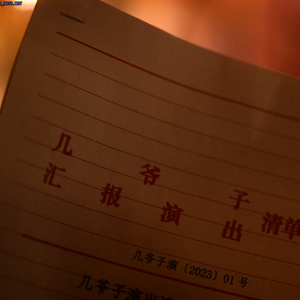 几爷子
汇报演出清单
几爷子演〔2023〕01号
几爷子演出